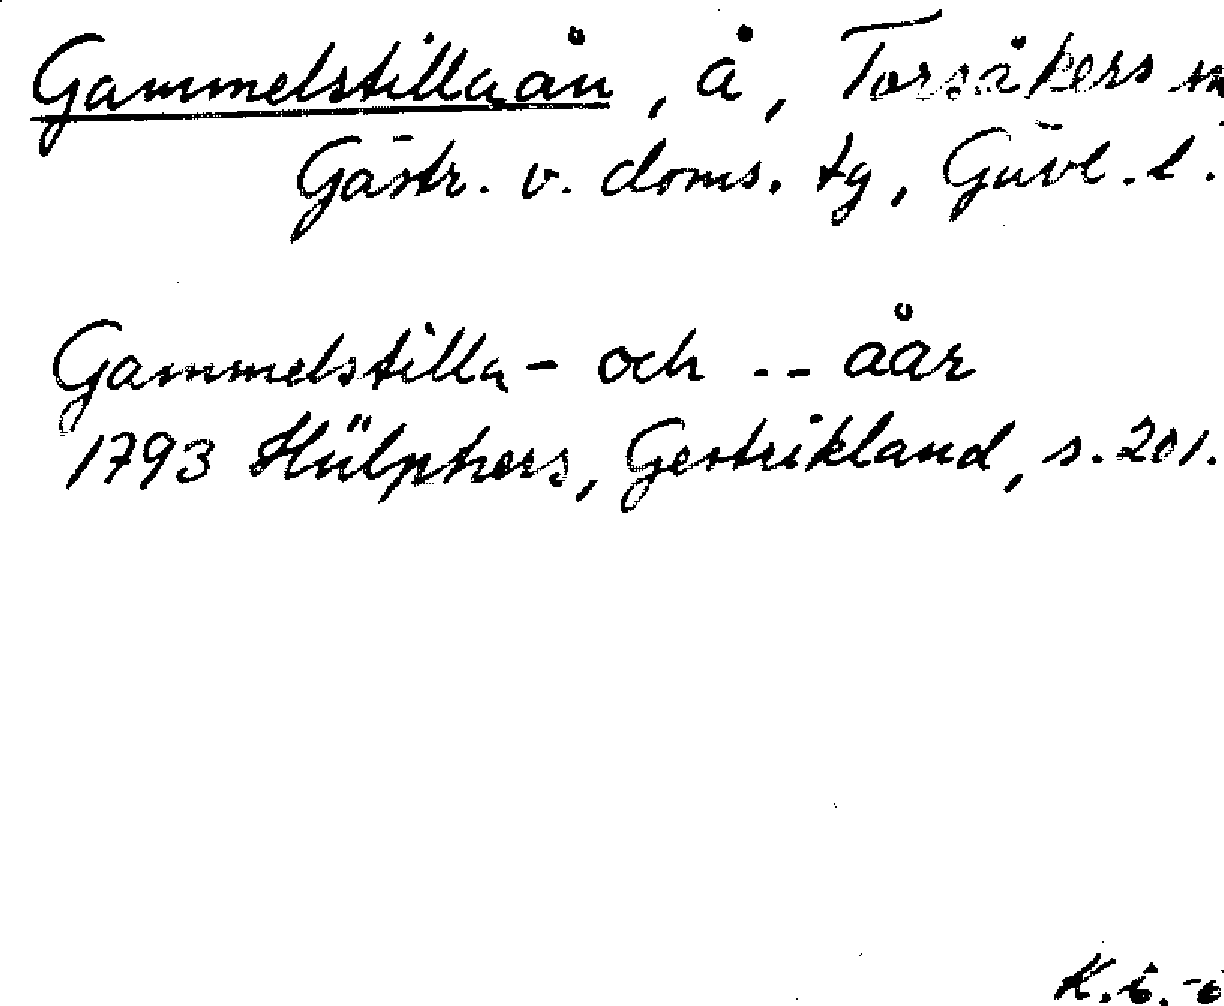 Gammelstillaån, å, Torsåkers sn
Gästr. v. doms. tg, Gävl. l.
Gammelstilla- och -- åar
1793 Hülphers, Gestrikland, s. 201.